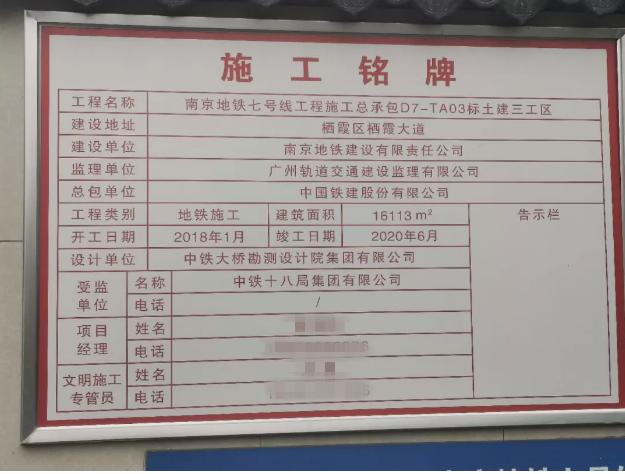 施工铭牌
工程名称 南京地铁七号线工程施工总承包D7-TA03标土建三工区
建设地址 栖霞区栖霞大道
建设单位 南京地铁建设有限责任公司
监理单位 广州轨道交通建设监理有限公司
总包单位 中国铁建股份有限公司
工程类别 地铁施工 建筑面积 16113 m² 告示栏
开工日期 2018年1月 竣工日期 2020年6月
设计单位 中铁大桥勘测设计院集团有限公司
受监单位 名称 中铁十八局集团有限公司
电话 /
项目经理 姓名
电话
文明施工专管员 姓名
电话